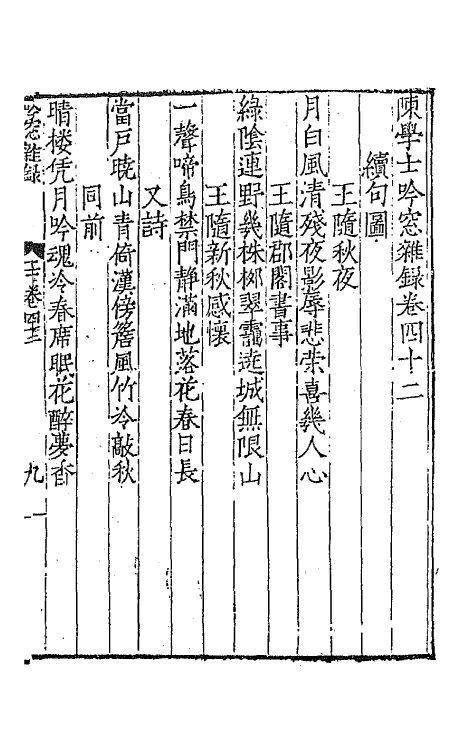 陳學士吟窓雜録卷四十二
續句圖
王隨秋夜
月白風清殘夜影辱悲榮喜幾人心
王隨郡閣書事
緑陰連野幾株栁翠靄遶城無限山
王隨新秋感懷
一聲啼鳥禁門静滿地落花春日長
又詩
當戸暁山青倚漢傍簷風竹冷敲秋
同前
晴楼凭月吟魂冷春席眠花醉夢香
吟窓雜録
九